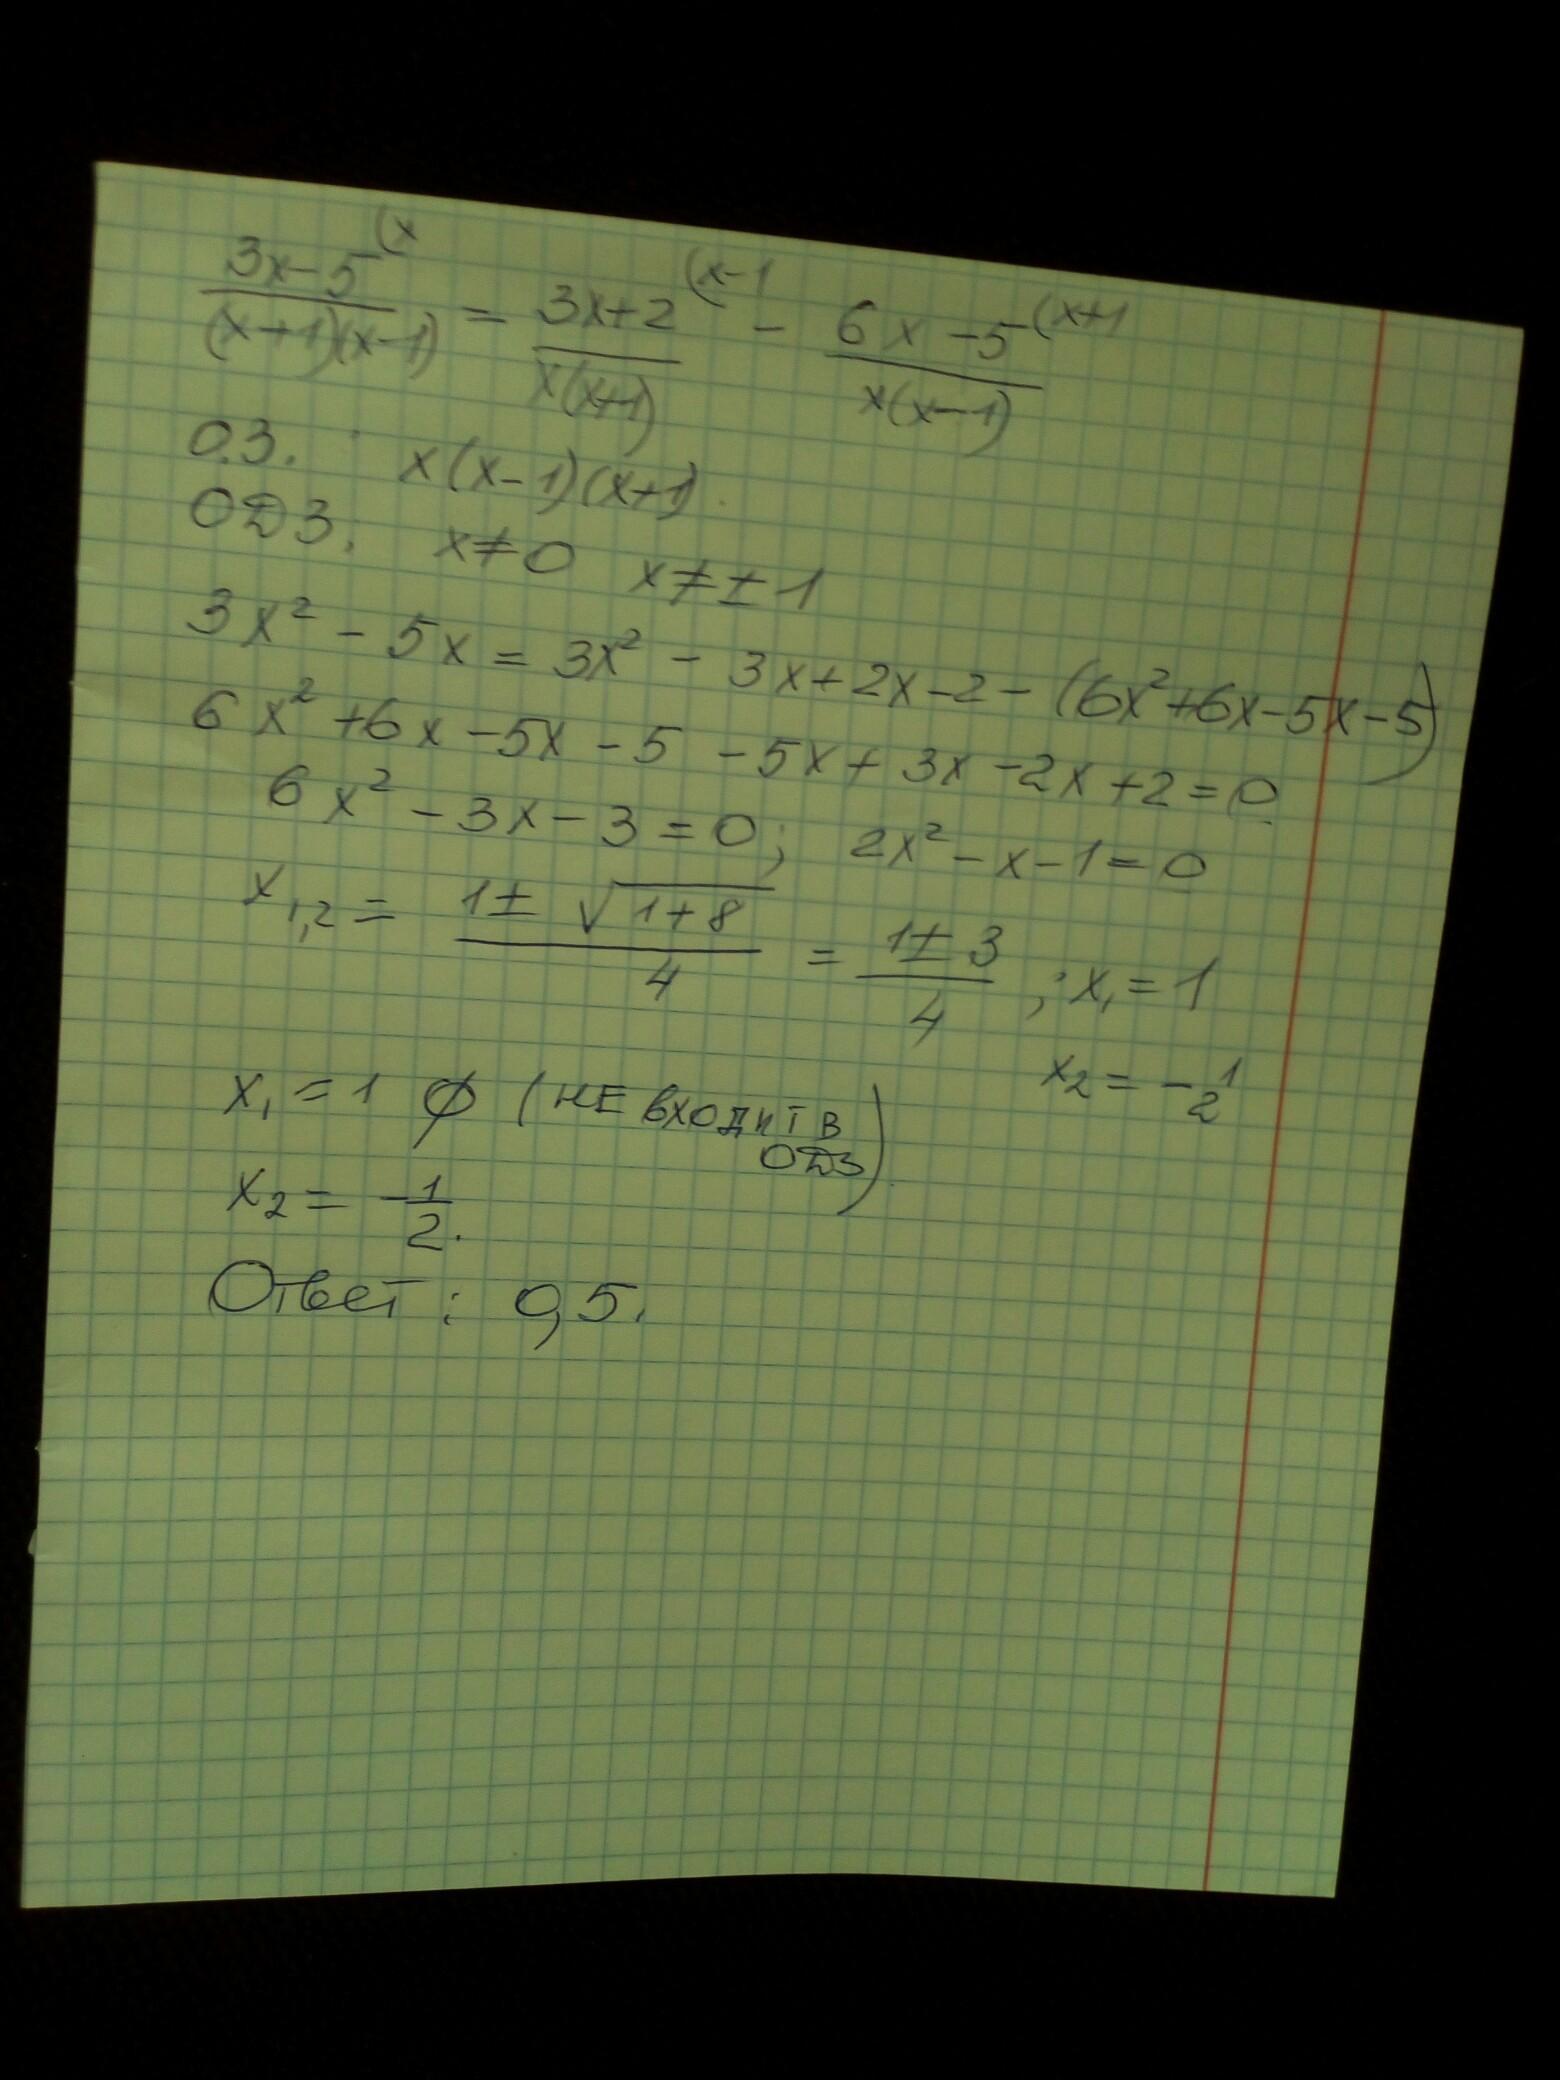 (3x-5)/((x+1)(x-1)) (x = (3x+2)/(x(x+1)) (x-1 - (6x-5)/(x(x-1)) (x+1
О.З. x(x-1)(x+1).
ОДЗ: x≠0 x≠±1
3x² - 5x = 3x² - 3x+2x-2-(6x²+6x-5x-5)
6x²+6x-5x-5-5x+3x-2x+2=0
6x²-3x-3=0; 2x²-x-1=0
x₁,₂ = (1±√(1+8))/4 = (1±3)/4; x₁=1
x₂=-1/2
x₁=1 ∅ (НЕ ВХОДИТ В
ОДЗ)
x₂= -1/2.
Ответ: 0,5.